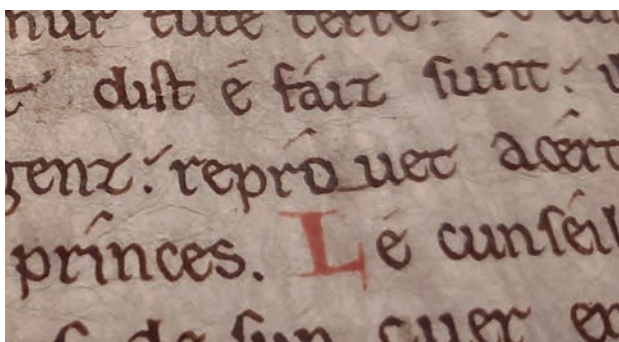 nur tute terre.
diſt é fáiz ſúnt:
genz: repróuet acért
prínces. Lé cunſéil
de ſun cuer